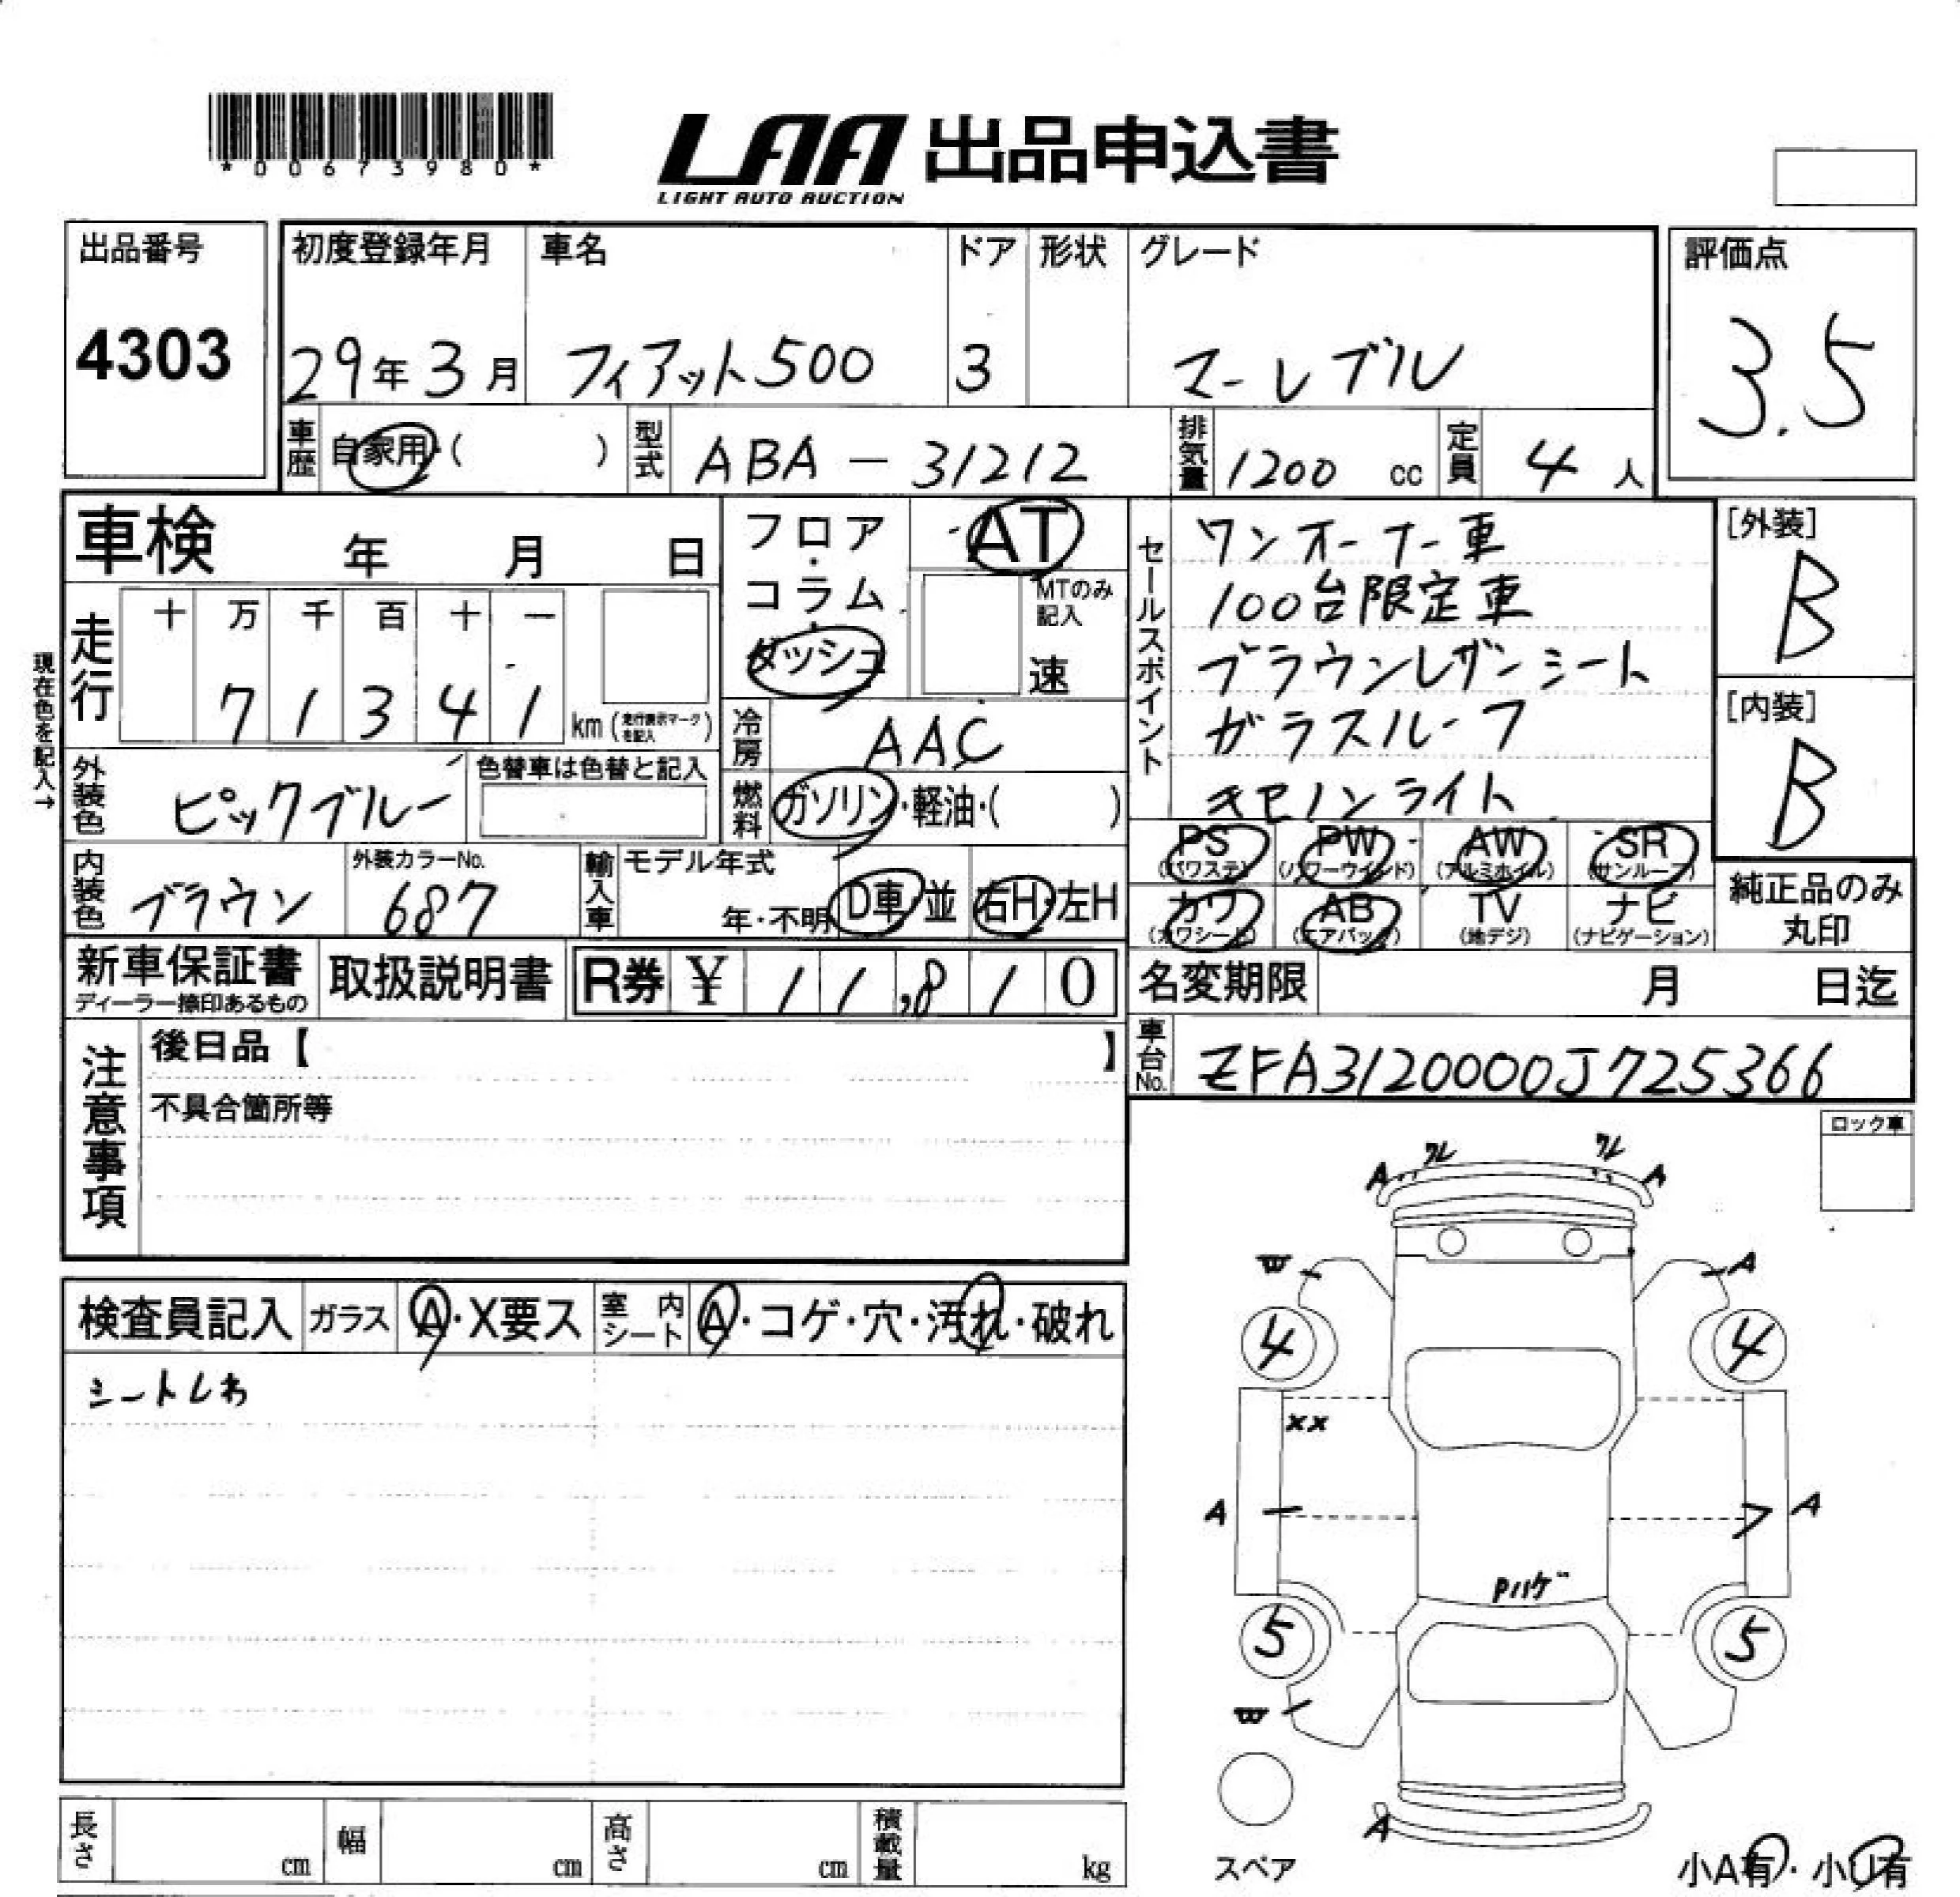 *00673980*
LAA 出品申込書
LIGHT AUTO AUCTION
出品番号
4303
初度登録年月
29年3月
車名
フィアット500
ドア
3
形状
グレード
マーレブル
評価点
3.5
車歴
自家用・( )
型式
ABA-31212
排気量
1200 cc
定員
4 人
車検 年 月 日
現在色を記入→
走行
十 万 千 百 十 一
7 1 3 4 1 km (走行表示マークを記入)
フロア・コラム・ダッシュ
AT
MTのみ記入
速
冷房
AAC
燃料
ガソリン・軽油・( )
外装色
ピックブルー
色替車は色替と記入
内装色
ブラウン
外装カラーNo.
687
輸入車
モデル年式
年・不明
D車・並
右H・左H
セールスポイント
ワンオーナー車
100台限定車
ブラウンレザーシート
ガラスルーフ
キセノンライト
[外装]
B
[内装]
B
PS (パワステ)
PW (パワーウインド)
AW (アルミホイル)
SR (サンルーフ)
カワ (カワシート)
AB (エアバック)
TV (地デジ)
ナビ (ナビゲーション)
純正品のみ丸印
新車保証書
ディーラー捺印あるもの
取扱説明書
R券 ¥ 11,810
名変期限 月 日迄
車台No.
ZFA3120000J725366
注意事項
後日品【 】
不具合箇所等
ロック車
検査員記入
ガラス
A・X要ス
室内シート
A・コゲ・穴・汚れ・破れ
シートしわ
A ワレ ワレ A
W A
4 4
XX
A A
Pハゲ
5 5
W
スペア
A
小A有・小U有
長さ cm
幅 cm
高さ cm
積載量 kg